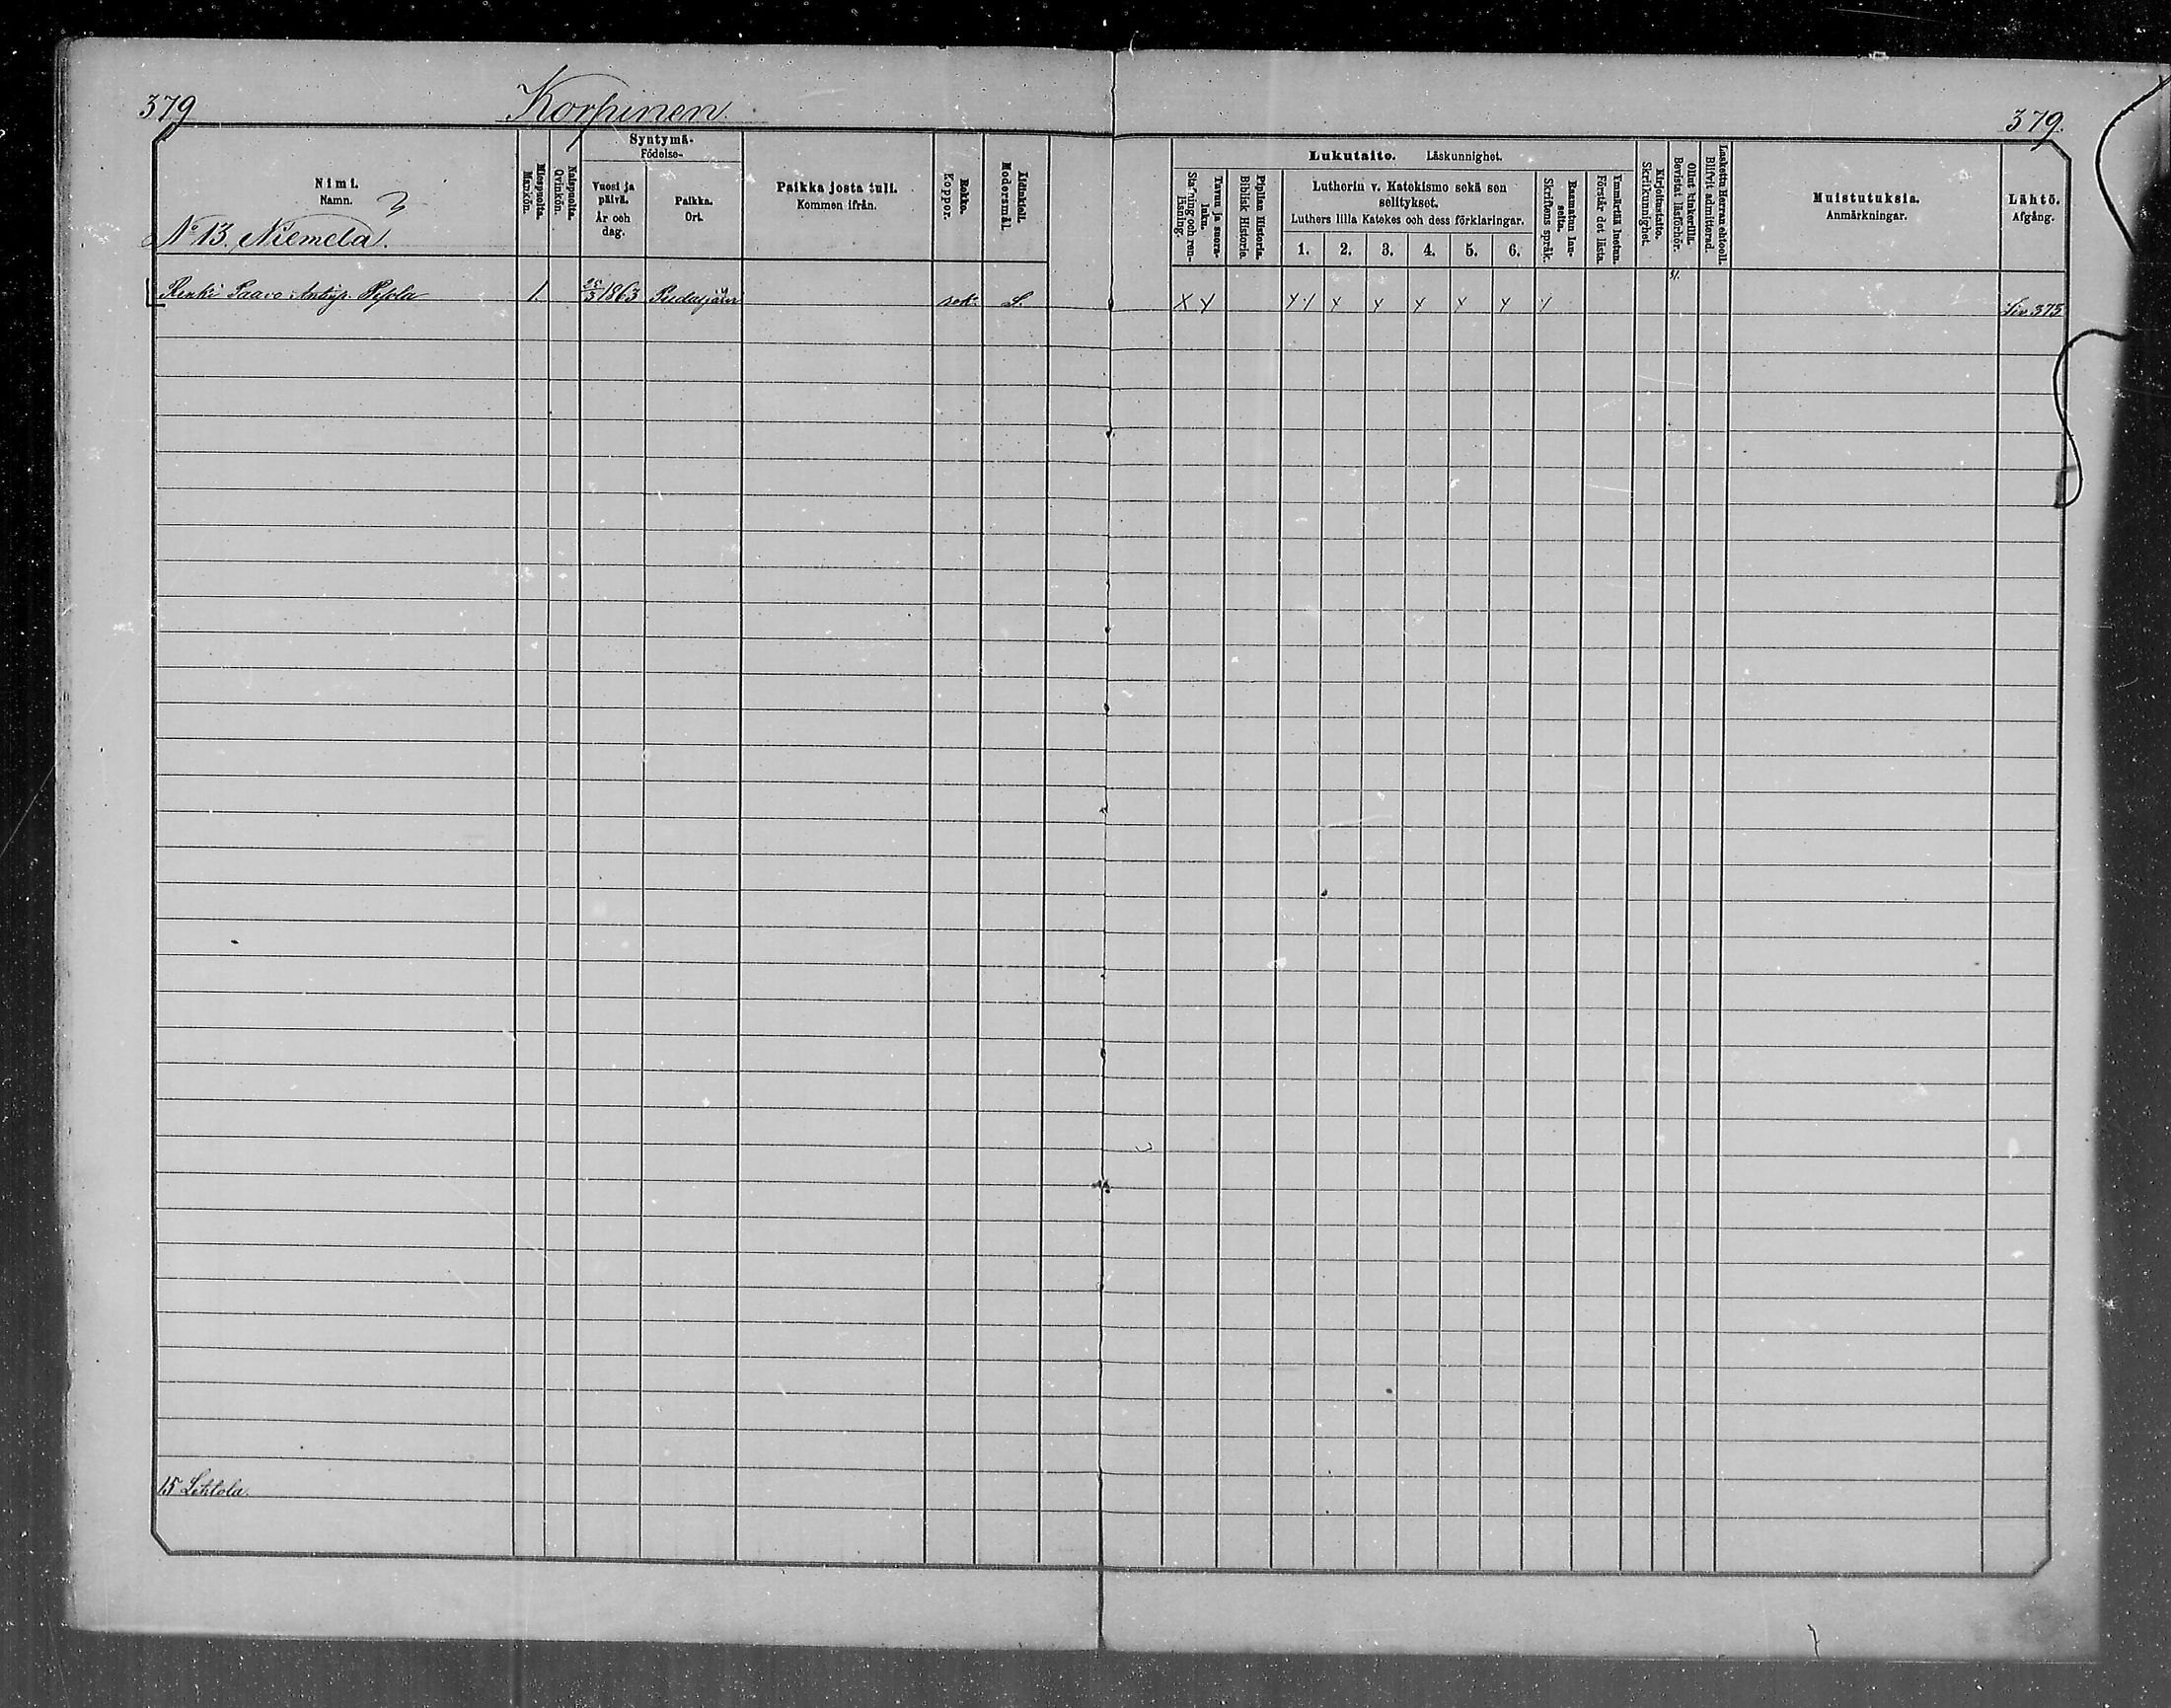 379 Korpinen 379.
Nimi.
Namn.
3
No 13. Niemelä.
Miespuolta.
Mankön.
Naispuolta.
Qvinkön.
Syntymä-
Födelse-
Vuosi ja
päivä.
År och
dag.
Paikka.
Ort.
Paikka josta tuli.
Kommen ifrån.
Rokko.
Koppor.
Äidinkieli.
Modersmål.
Lukutaito. Läskunnighet.
Tavuu ja suora-
luku.
Stafning och ren-
läsning.
Piplian Historia.
Biblisk Historia
Lutherin v. Katekismo sekä sen
selitykset.
Luthers lilla Katekes och dess förklaringar.
1. 2. 3. 4. 5. 6.
Raamatun lau-
seita.
Skriftens språk.
Ymmärtää luetun.
Förstår det lästa.
Kirjoitustaito.
Skrifkunnighet.
Ollut kinkerillä.
Bevistat läsförhör.
Laskettu Herran ehtooll.
Blifvit admitterad.
Muistutuksia.
Anmärkningar.
Lähtö.
Afgång.
Renki Paavo Antinp. 1. 1863 Pudasjärvi rok. S. X Y Y Y Y Y Y Y Y Siv. 375
15 Lehtola.